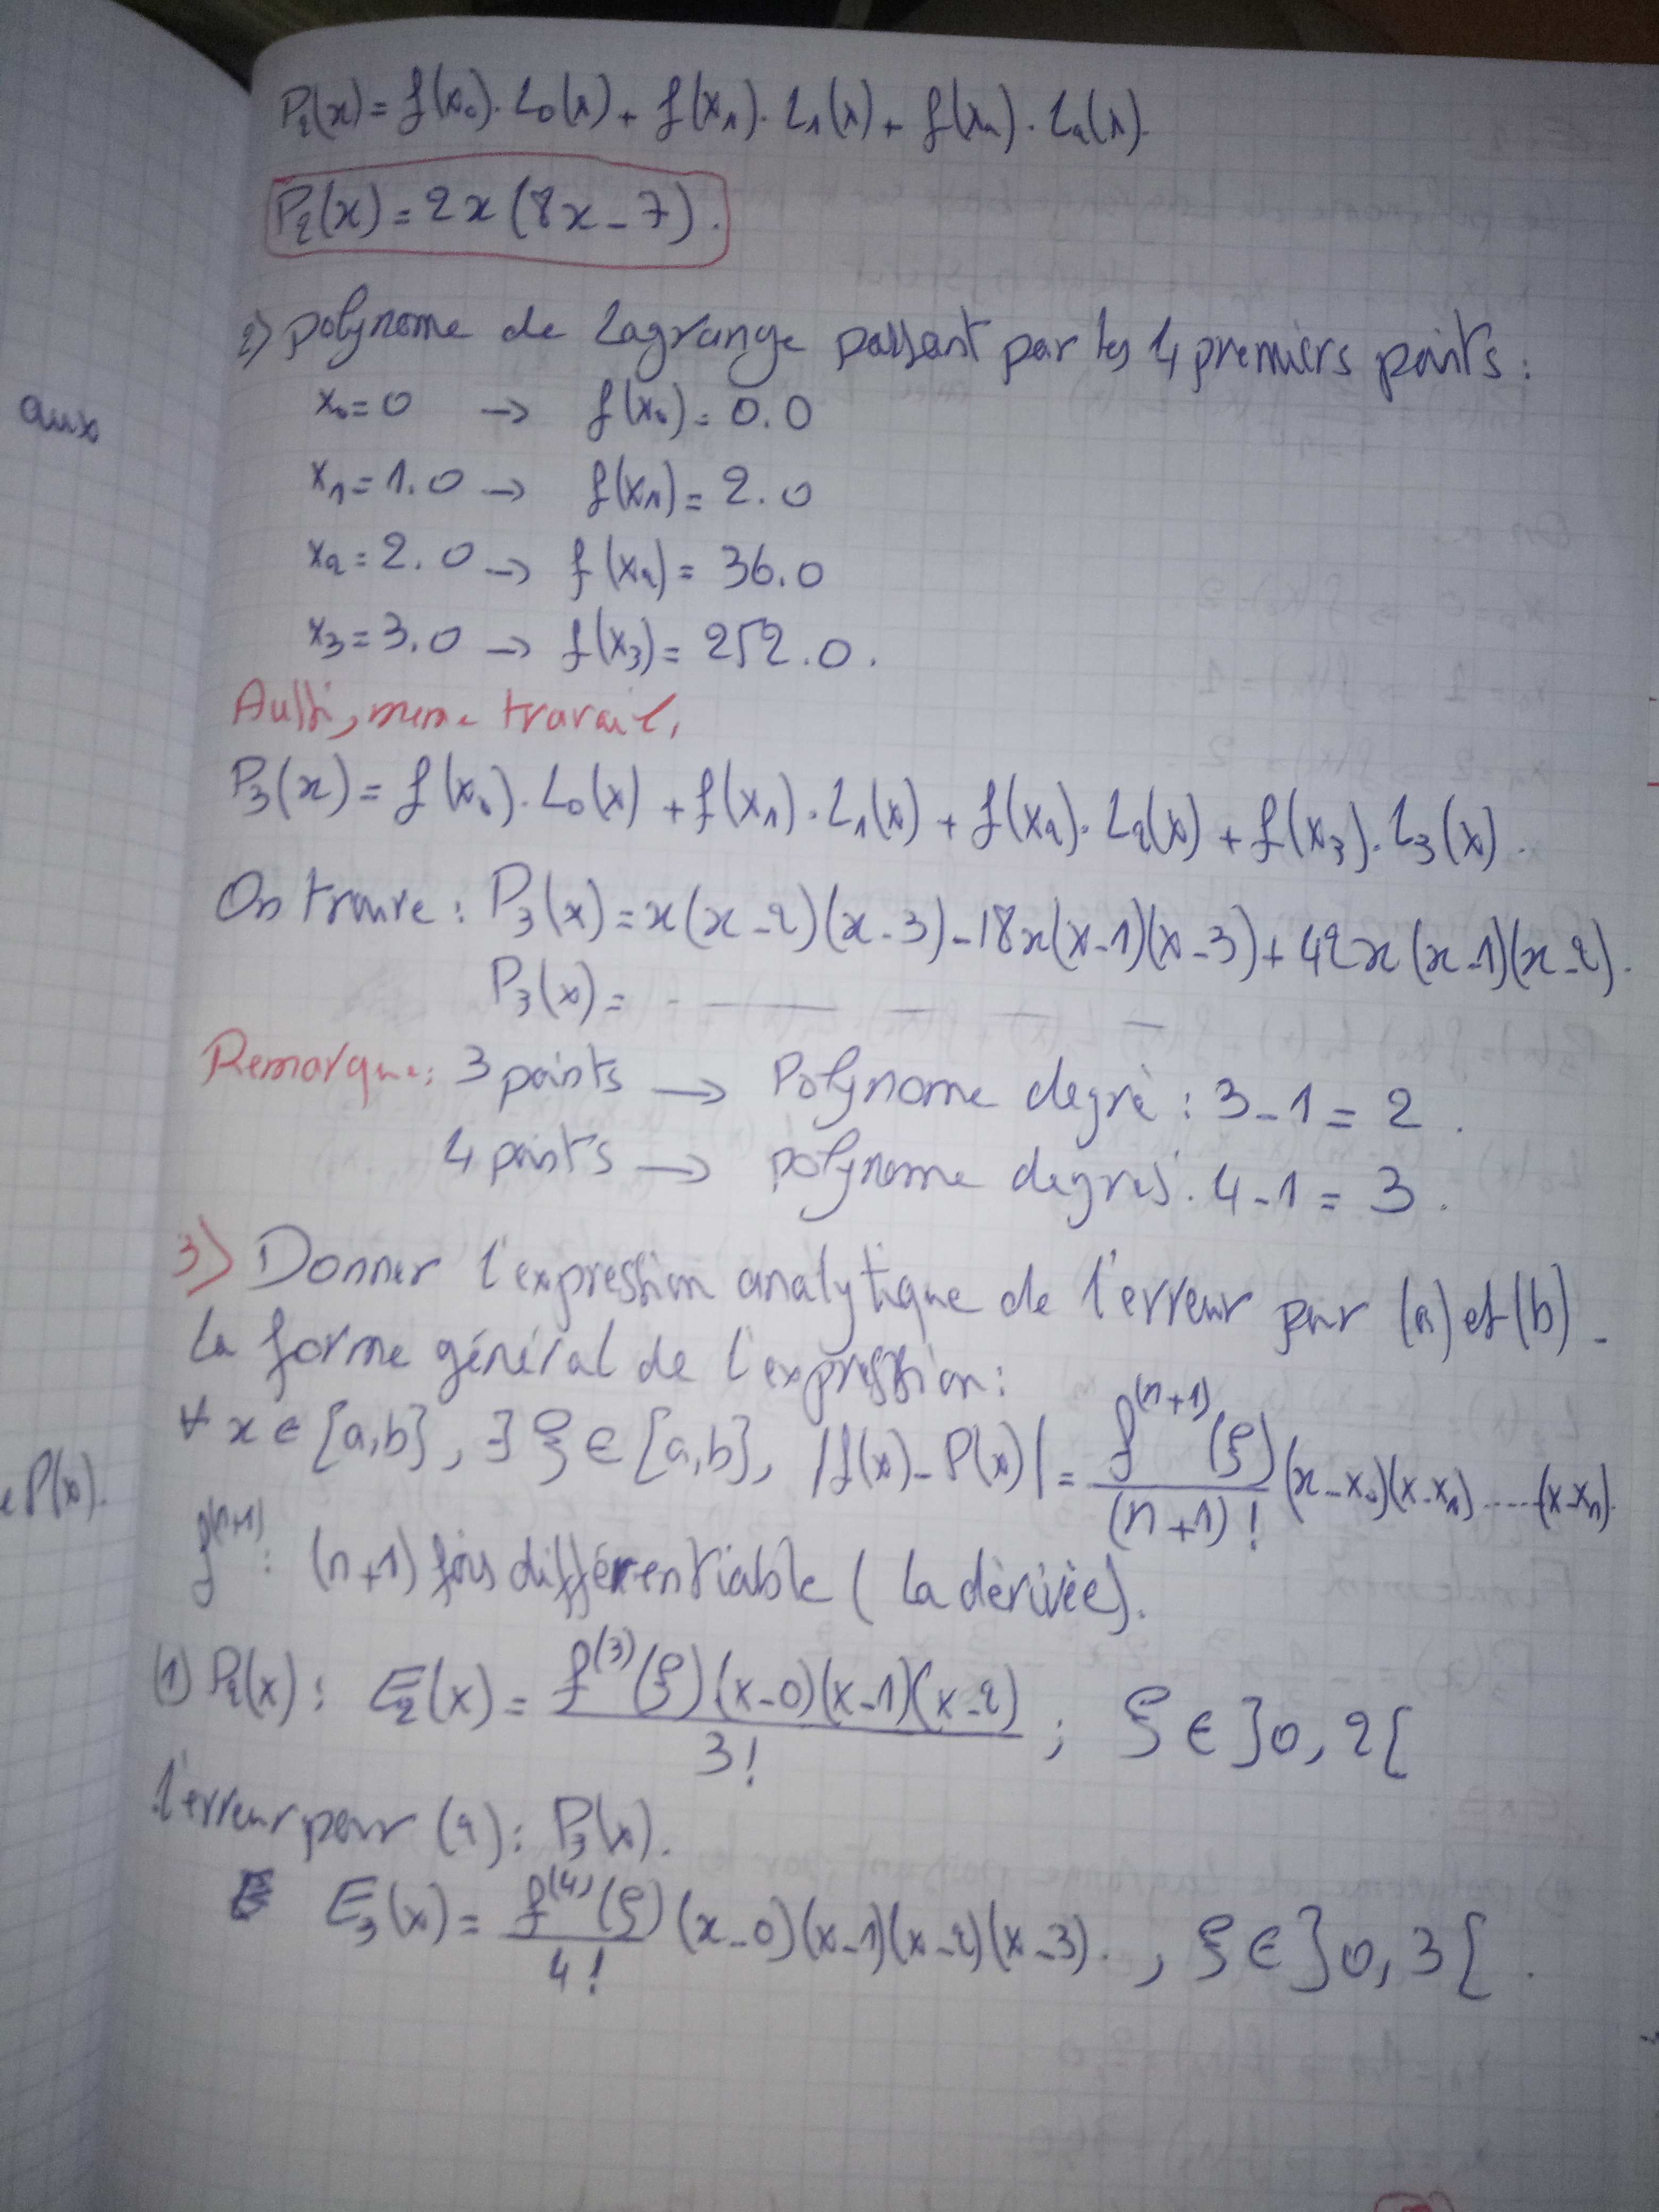 P₂(x) = f(x₀). L₀(x) + f(x₁). L₁(x) + f(x₂). L₂(x).
P₂(x) = 2x (8x - 7).
2) polynome de Lagrange passant par les 4 premiers points :
aux
x₀ = 0 → f(x₀) = 0.0
x₁ = 1.0 → f(x₁) = 2.0
x₂ = 2.0 → f(x₂) = 36.0
x₃ = 3.0 → f(x₃) = 252.0.
Aussi, meme travail,
P₃(x) = f(x₀). L₀(x) + f(x₁). L₁(x) + f(x₂). L₂(x) + f(x₃). L₃(x).
On trouve : P₃(x) = x(x-2)(x-3) - 18x(x-1)(x-3) + 42x(x-1)(x-2).
P₃(x) = - — — — —
Remarque : 3 points → Polynome degré : 3-1 = 2.
4 points → polynome degrés : 4-1 = 3.
3) Donner l'expression analytique de l'erreur pour (a) et (b).
La forme général de l'expression :
∀ x ∈ [a,b], ∃ ξ ∈ [a,b], |f(x) - P(x)| = f⁽ⁿ⁺¹⁾(ξ)/(n+1)! (x-x₀)(x-x₁).....(x-xₙ).
P(x).
f⁽ⁿ⁺¹⁾ : (n+1) fois différentiable (la dérivée).
(1) P₂(x) : E₂(x) = f⁽³⁾(ξ)(x-0)(x-1)(x-2)/3! ; ξ ∈ ]0, 2[
l'erreur pour (2) : P₃(x).
E₃(x) = f⁽⁴⁾(ξ)/4! (x-0)(x-1)(x-2)(x-3). , ξ ∈ ]0, 3[.